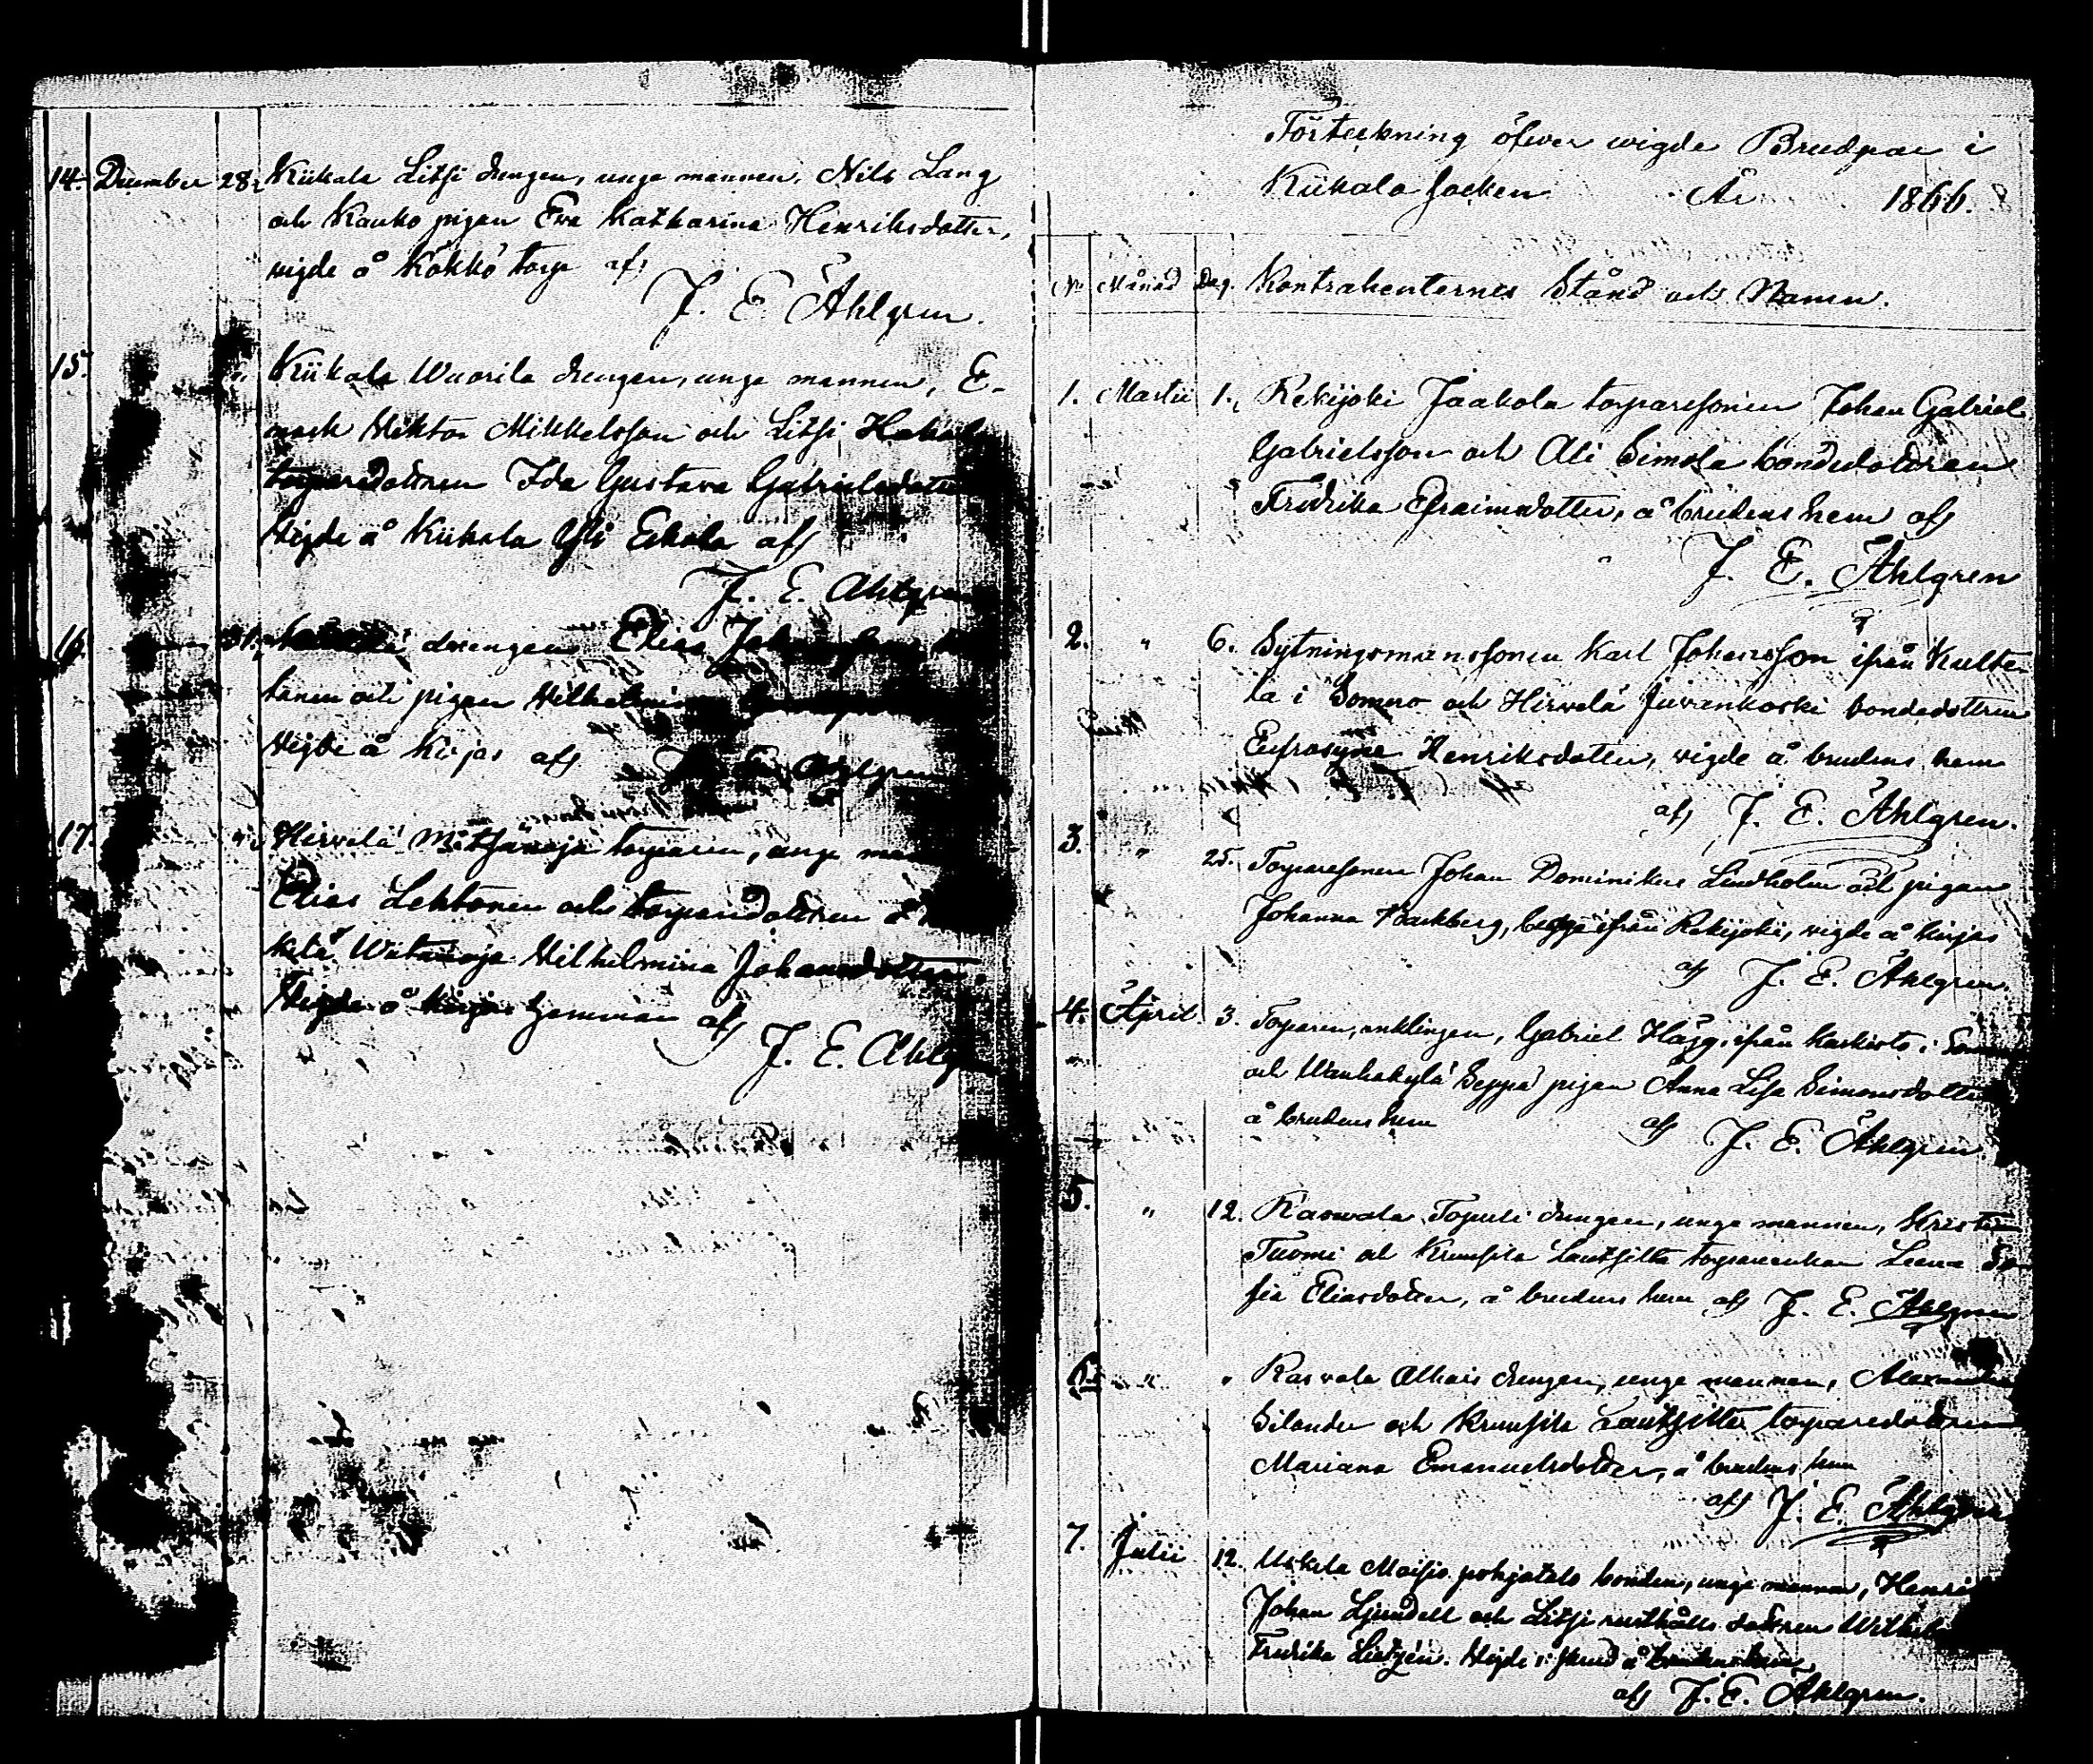 14. December 28. Kiikala Litsi drengen, unge mannen, Nils Lang
och Kauko pigan Eva Katharina Henriksdotter,
vigde å Kökkö torp af
J. E. Åhlgren.
15. " Kiikala Wuorila drengen, unge mannen, E-
nock Wiktor Mikkelsson och Litsi
torparedottren Ida Gustava Gabrielsdotter
Vigde å Kiikala Yli Eskola af
J. E. Åhlgren
16. 31. drengen Elias
tanen och pigan Vilhelmina
Vigde å Kirjas af J. E. Åhlgren
17. " Hirvelä Mätsänoja torparen, unge
Elias Lehtonen och torparedottren
Vilhelmina Johansdotter.
Vigde å af
J. E. Åhlgren
Förteckning öfver vigde Brudpar i
Kiikala Socken År 1866.
No Månad Dag. Kontrahenternes Stånd och Namn.
1. Martii 1. Rekijoki Jaakola torparesonen Johan Gabriel
Gabrielsson och Ali Simola bondedottren
Fredrika Efraimsdotter, å brudens hem af
J. E. Åhlgren
2. " 6. Sytningsmanssonen Karl Johansson ifrån Kulte-
la i Somero och Hirvelä Juvankoski bondedottren
Eufrosyne Henriksdotter, vigde å brudens hem
af J. E. Åhlgren.
3. " 25. Torparesonen Johan Dominikus Lindholm och pigan
Johanna Backberg, begge ifrån Rekijoki, vigde å Kirjas
af J. E. Åhlgren.
4. April 3. Torparen, enklingen, Gabriel Hägg, ifrån Kaskisto i
och Wanhakylä Seppä pigan Anna Lisa Simonsdotter
å brudens hem af J. E. Åhlgren.
5. " 12. Rasvala Topuli drengen, unge mannen,
Tuomi och Kruusila Lautsilta torpareenkan Leena So-
fia Eliasdotter, å brudens hem af J. E. Åhlgren
6. " " Rasvala Alhais drengen, unge mannen, Alexander
Silander och Kruusila Lautsilta torparedottren
Mariana Emanuelsdotter, å brudens hem
af J. E. Åhlgren
7. Julii 12. Uskela Moisio pohjatalo bonden, unge mannen,
Johan Ljundell och Litsi rusthålls dottren
Fredrika Lietzén. Vigde i skrud å brudens hem
af J. E. Åhlgren.